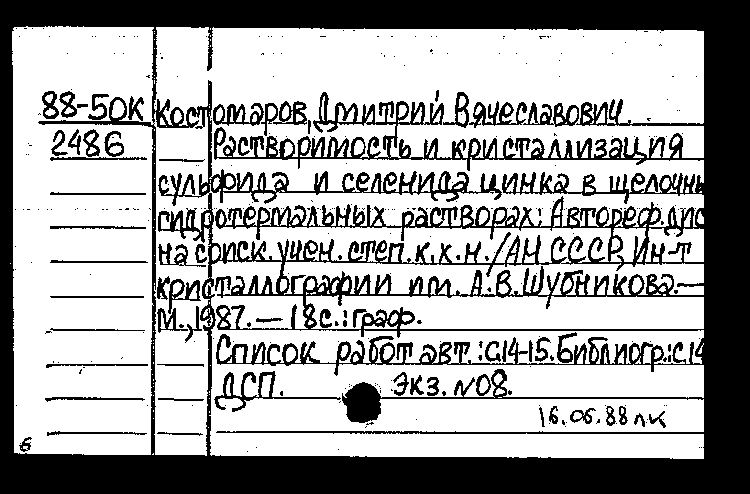 88-50К Костомаров, Дмитрий Вячеславович.
2486 Растворимость и кристаллизация
сульфида и селенида цинка в щелочн
гидротермальных растворах: Автореф.дис
на соиск.учен.степ.к.х.н./АН СССР, Ин-т
кристаллографии им. А.В.Шубникова.—
М.,1987.—18с.:граф.
Список работ авт.:с.14-15.Библиогр.:с.14
ДСП. Экз.№08.
16.06.88 лк
6